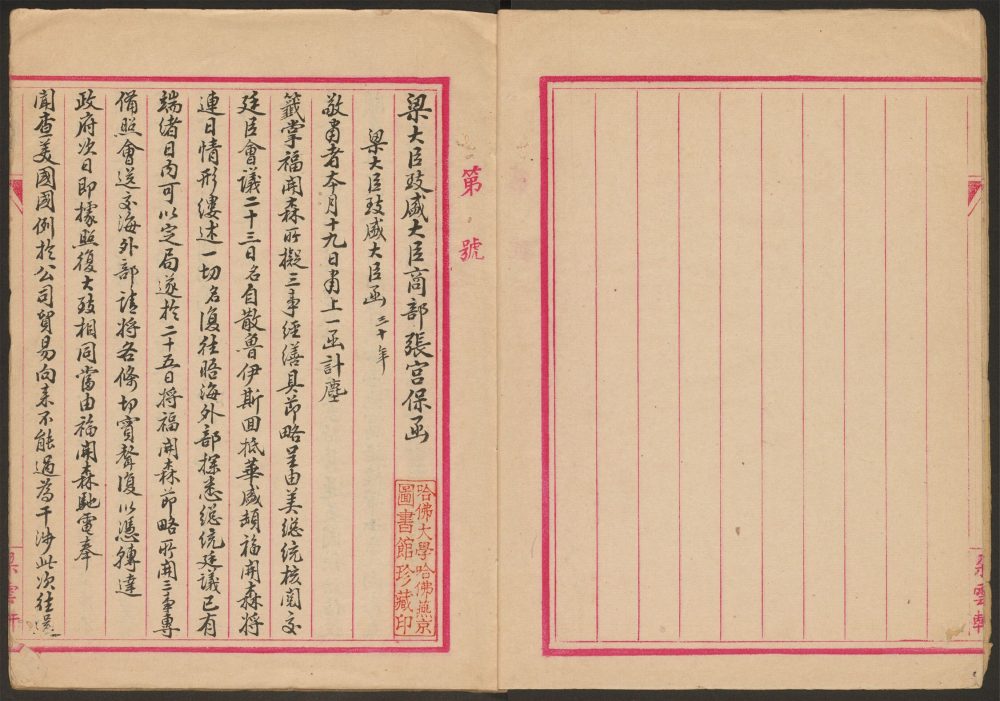 第 號
梁大臣致盛大臣商部張宮保函
梁大臣致盛大臣函 三十年
敬肅者本月十九日肅上一函計塵
籤掌福開森所擬三事經繕具節略呈由美總統核閱交
廷臣會議二十三日名自散魯伊斯回抵華盛頓福開森將
連日情形縷述一切名復往晤海外部探悉總統廷議已有
端緒日內可以定局遂於二十五日將福開森節略所開三事專
備照會送交海外部請將各條切實聲復以憑轉達
政府次日即據照復大致相同當由福開森馳電奉
聞查美國國例於公司貿易向來不能過為干涉此次往
哈佛大學哈佛燕京
圖書館珍藏印
雲軒